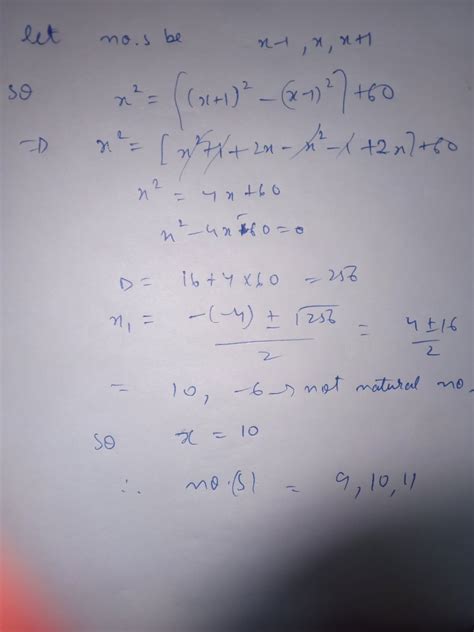 let no.s be x-1, x, x+1
so x² = [(x+1)² - (x-1)²] + 60
=> x² = [x²+1+2x-x²-1+2x]+60
x² = 4x+60
x²-4x-60=0
D = 16+4×60 = 256
x₁ = -(-4) ± √256 / 2 = 4±16 / 2
= 10, -6 → not natural no.
so x = 10
∴ no.(s) = 9, 10, 11